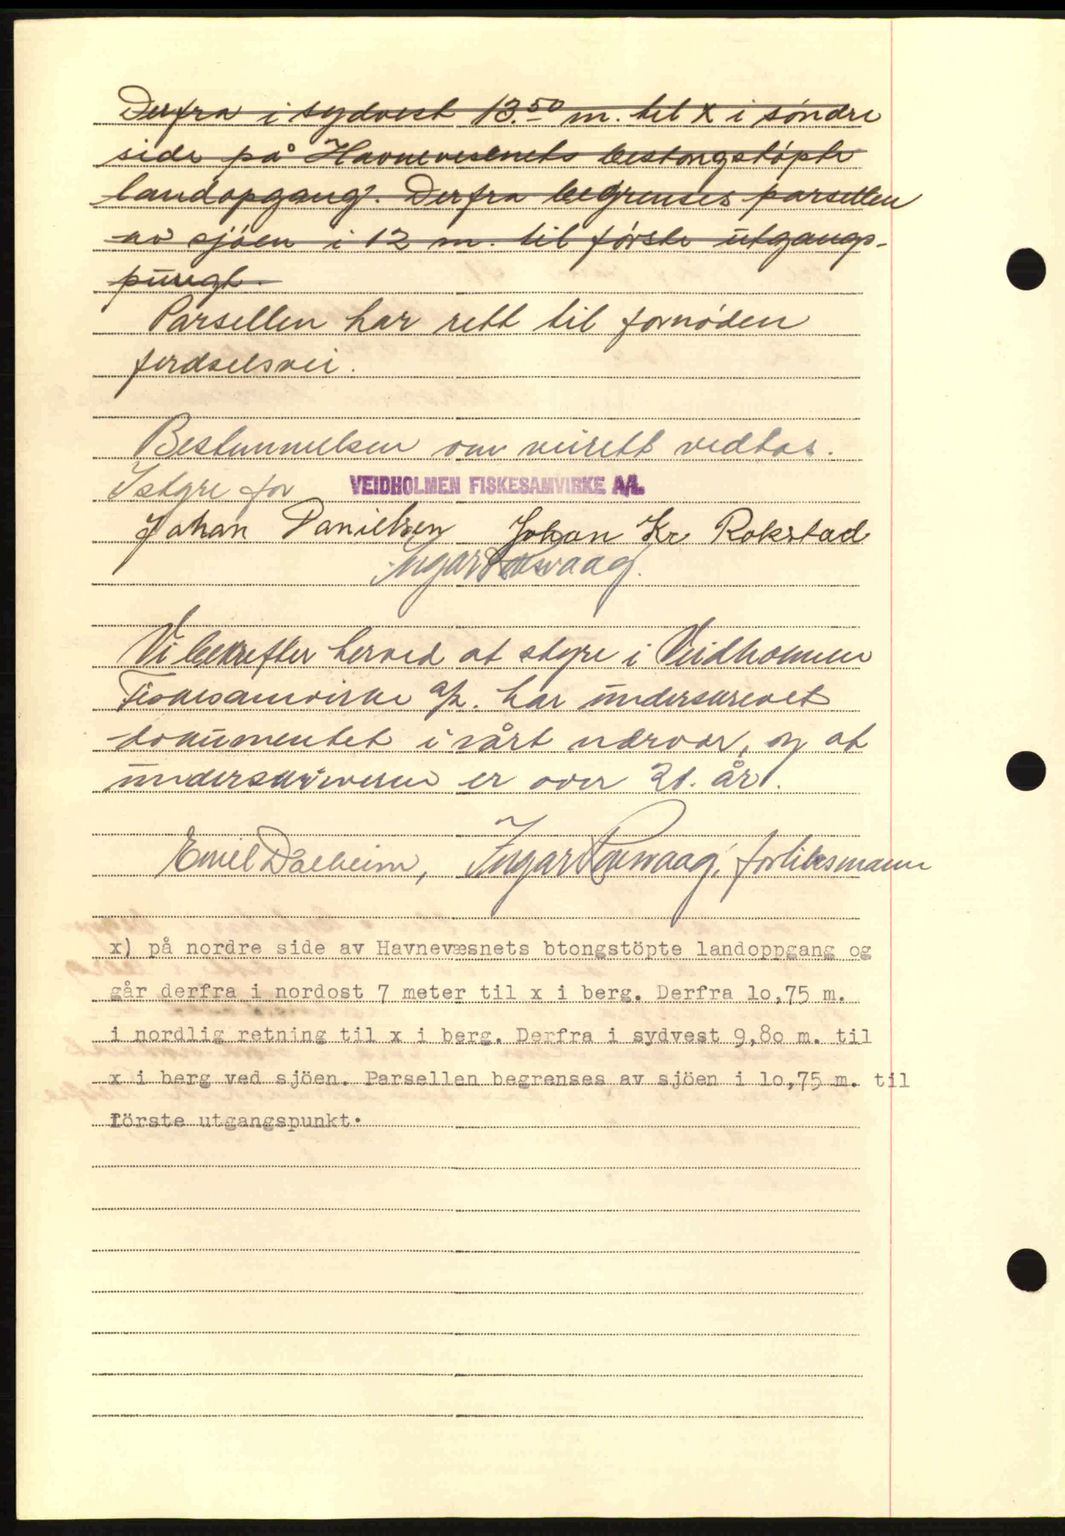 Derfra i sydvest 13.50 m. til x i söndre
side på Havnevesenets bestongstöpte
landopgang. Derfra begrenses parsellen
av sjöen i 12 m. til förste utgangs-
punegt.
Parsellen har rett til fornöden
ferdselsvei.
Bestemmelsen om veirett vedtas.
I styre for VEIDHOLMEN FISKESAMVIRKE A/L.
Johan Danielsen Johan Kr Rokstad
Ingar
Vi bekrefter herved at styre i Veidholmen
Fiskesamvirke a/l. har underskrevet
dokumentet i vårt nærvær, og at
underskriverne er over 21. år.
Emil Dalheim, Ingar forliksmann
x) på nordre side av Havnevæsnets btongstöpte landoppgang og
går derfra i nordost 7 meter til x i berg. Derfra lo,75 m.
i nordlig retning til x i berg. Derfra i sydvest 9,8o m. til
x i berg ved sjöen. Parsellen begrenses av sjöen i lo,75 m. til
förste utgangspunkt.